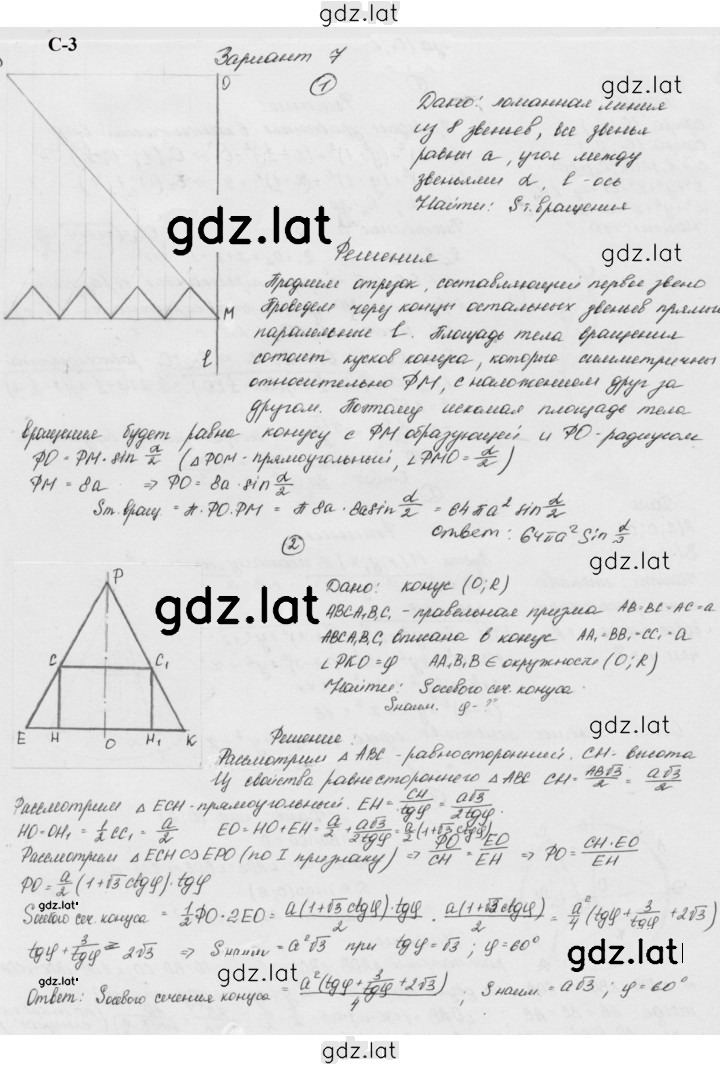 gdz.lat
С-3
Вариант 7
O
1
gdz.lat
Дано: ломанная линия
из 8 звеньев, все звенья
равны a, угол между
звеньями α, l - ось
Найти: Sт.вращения
gdz.lat
gdz.lat
Решения
Продлим отрезок, составляющей первое звено
Проведем через концы остальных звеньев прямые
M
паралельные l. Площадь тела вращения
l
сотоит кусков конуса, которые симметричны
относительно PM, с наложением друг за
другом. Поэтому искомая площадь тела
вращения будет равна конусу с PM образующей и PO-радиусом
PO = PM · sin α/2 (△POM - прямоугольный, ∠PMO = α/2)
PM = 8a ⇒ PO = 8a · sin α/2
Sт.вращ = π · PO · PM = π 8a · 8a sin α/2 = 64πa² sin α/2
ответ: 64πa² Sin α/2
2
gdz.lat
P
Дано: конус (O; R)
gdz.lat
ABCA₁B₁C₁ - правельная призма AB=BC=AC=a
ABCA₁B₁C₁ вписана в конус AA₁=BB₁=CC₁=a
C C₁
∠PKO = φ AA₁B₁B ∈ окружности (O; R)
Найти: Sосевого сеч. конуса
Sнаим. φ-?
gdz.lat
E H O H₁ K
Решение:
Рассмотрим △ABC - равносторонний. CH - высота
Из свойства равностороннего △ABC CH = AB√3/2 = a√3/2
Рассмотрим △ECH - прямоугольный. EH = CH/tgφ = a√3/2tgφ.
HO=OH₁ = 1/2 CC₁ = a/2 EO = HO+EH = a/2 + a√3/2tgφ = a/2 (1+√3 ctgφ)
Рассмотрим △ECH ∽ △EPO (по I признаку) ⇒ PO/CH = EO/EH ⇒ PO = CH·EO/EH
PO = a/2 (1+√3 ctgφ) · tgφ
gdz.lat
Sосевого сеч. конуса = 1/2 PO · 2EO = a(1+√3 ctgφ) · tgφ/2 · a(1+√3 ctgφ)/2 = a²/4 (tgφ + 3/tgφ + 2√3)
tgφ + 3/tgφ ≥ 2√3 ⇒ Sнаим = a²√3 при tgφ = √3; φ = 60°
gdz.lat
gdz.lat
Ответ: Sосевого сечения конуса = a²(tgφ + 3/tgφ + 2√3)/4; Sнаим. = a√3; φ = 60°
gdz.lat